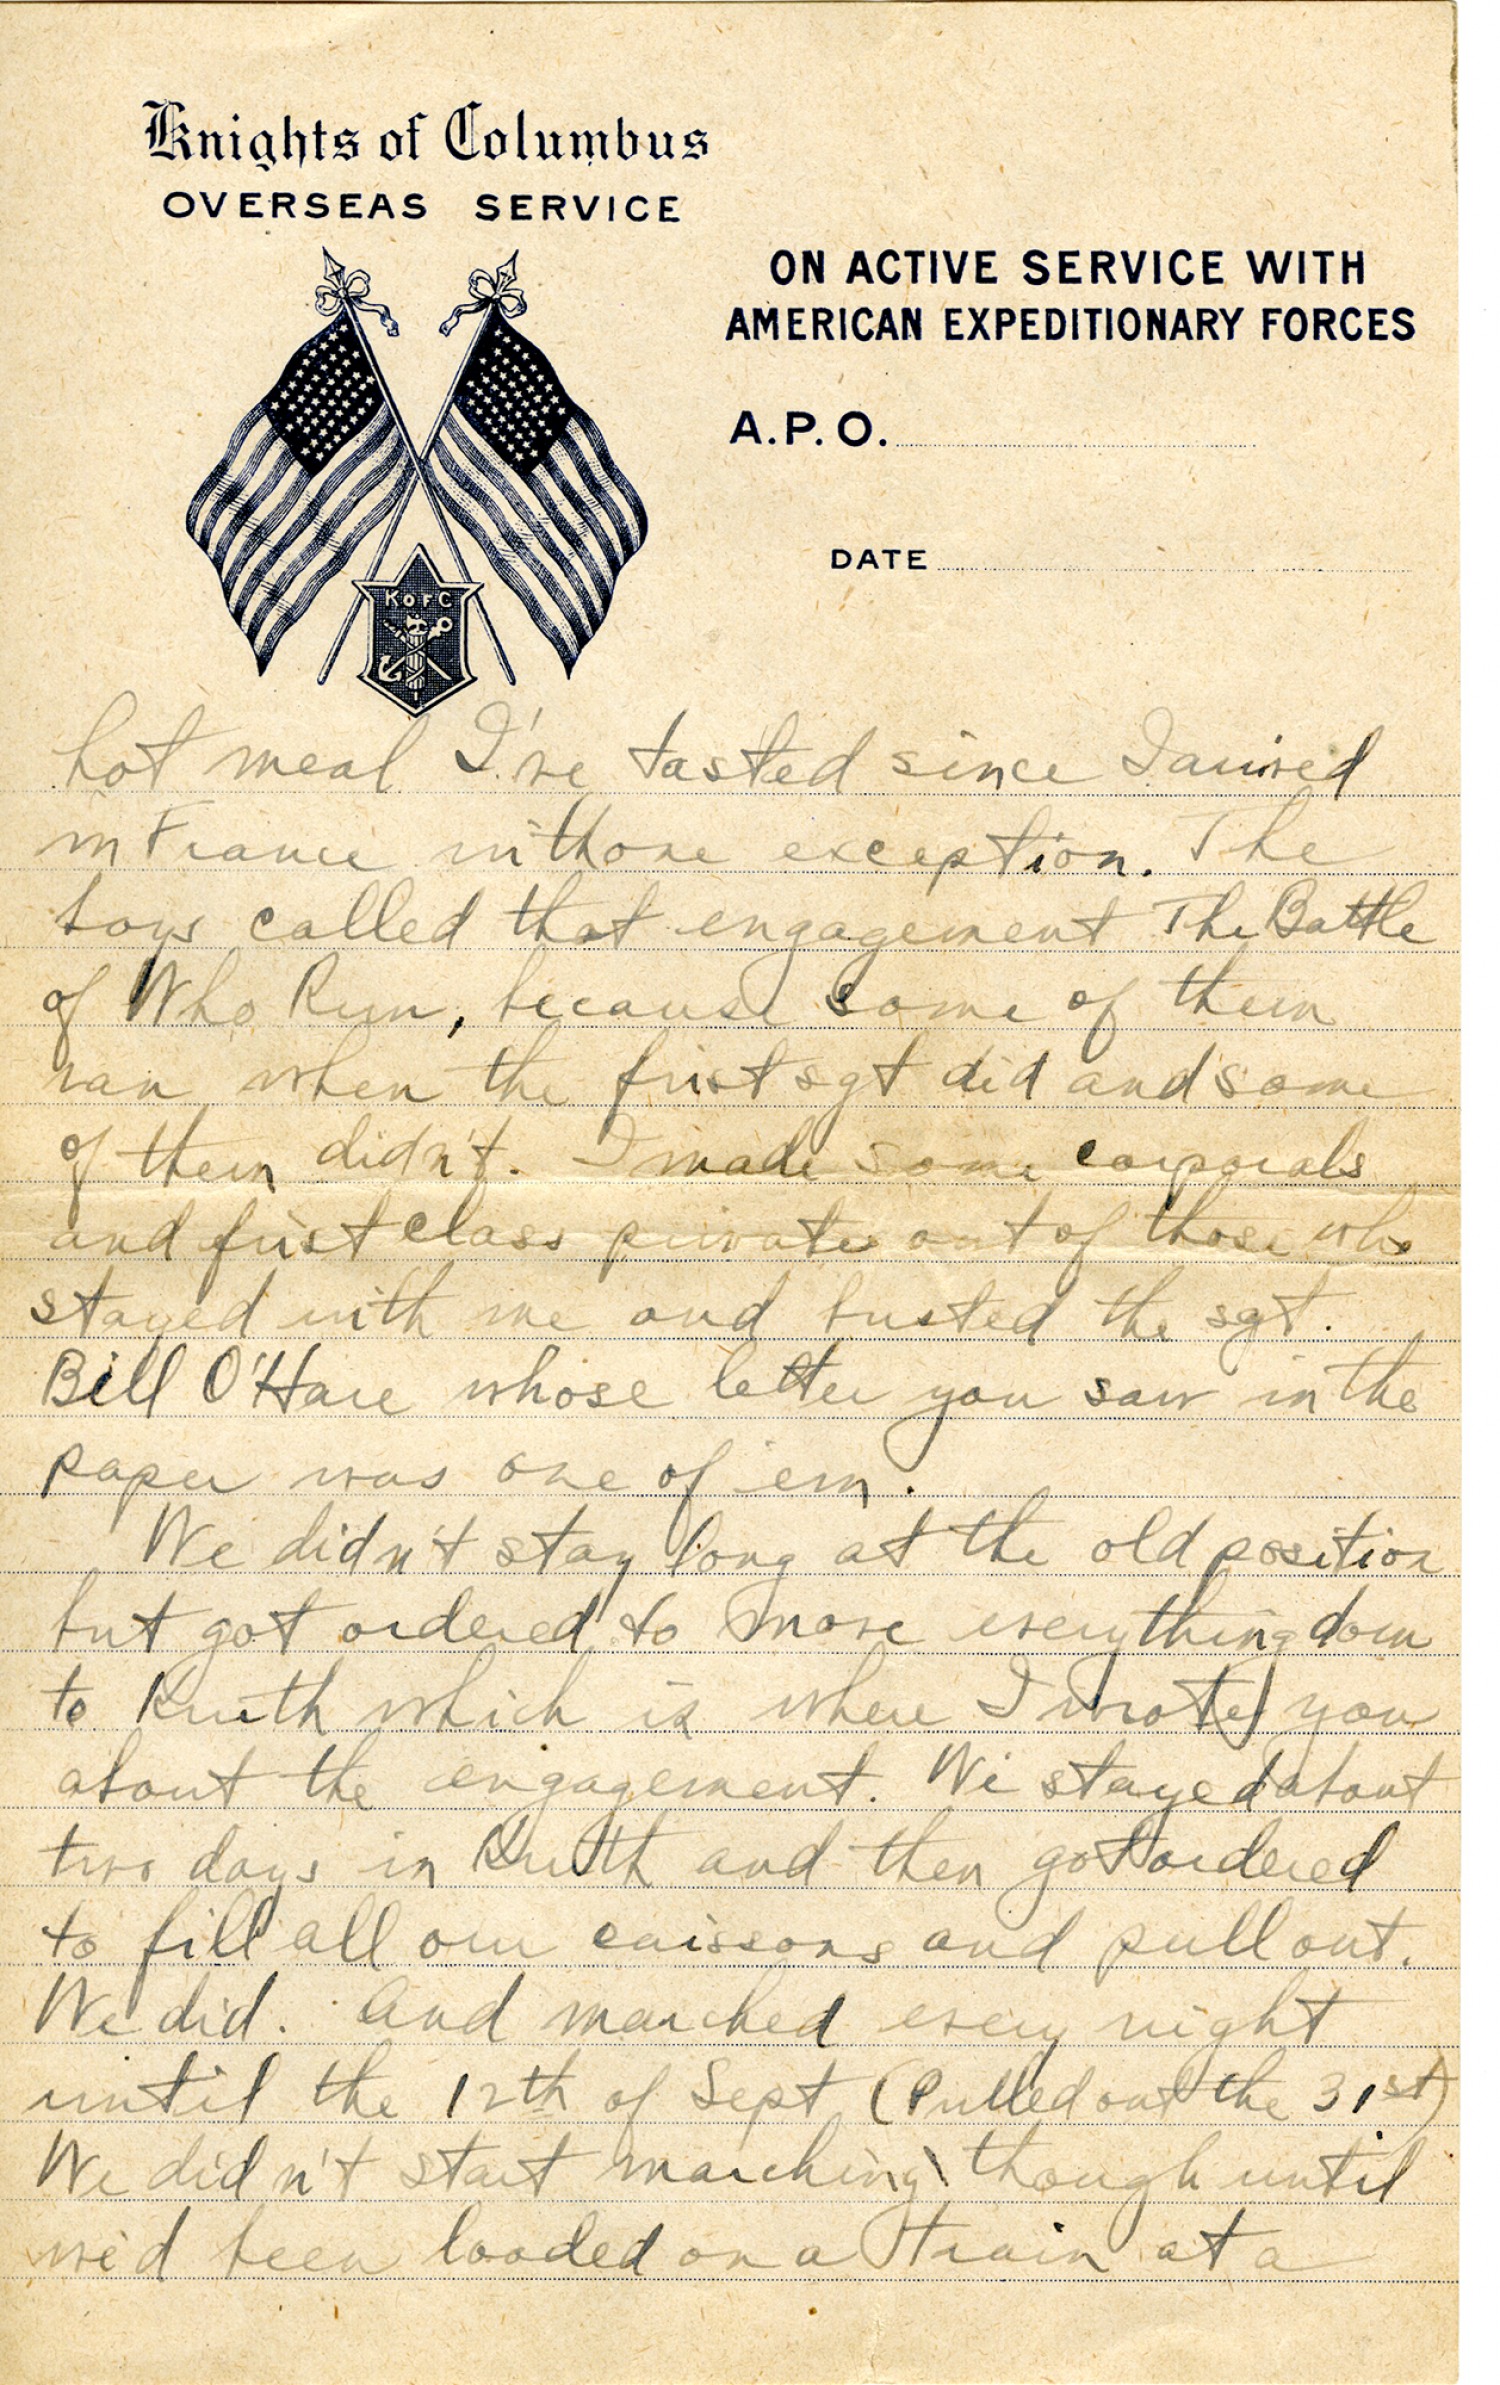 Knights of Columbus
OVERSEAS SERVICE
ON ACTIVE SERVICE WITH
AMERICAN EXPEDITIONARY FORCES
A.P.O.
DATE
K OF C
hot meal I've tasted since I arrived
in France with one exception. The
boys called that engagement The Battle
of Who Run, because some of them
ran when the first sgt did and some
of them didn't. I made some corporals
and first class privates out of those who
stayed with me and busted the sgt.
Bill O'Hare whose letter you saw in the
paper was one of 'em.
We didn't stay long at the old position
but got ordered to move everything down
to Kruth which is where I wrote you
about the engagement. We stayed about
two days in Kruth and then got ordered
to fill all our caissons and pull out.
We did. And marched every night
until the 12th of Sept (Pulled out the 31st)
We didn't start marching though until
we'd been loaded on a train at a